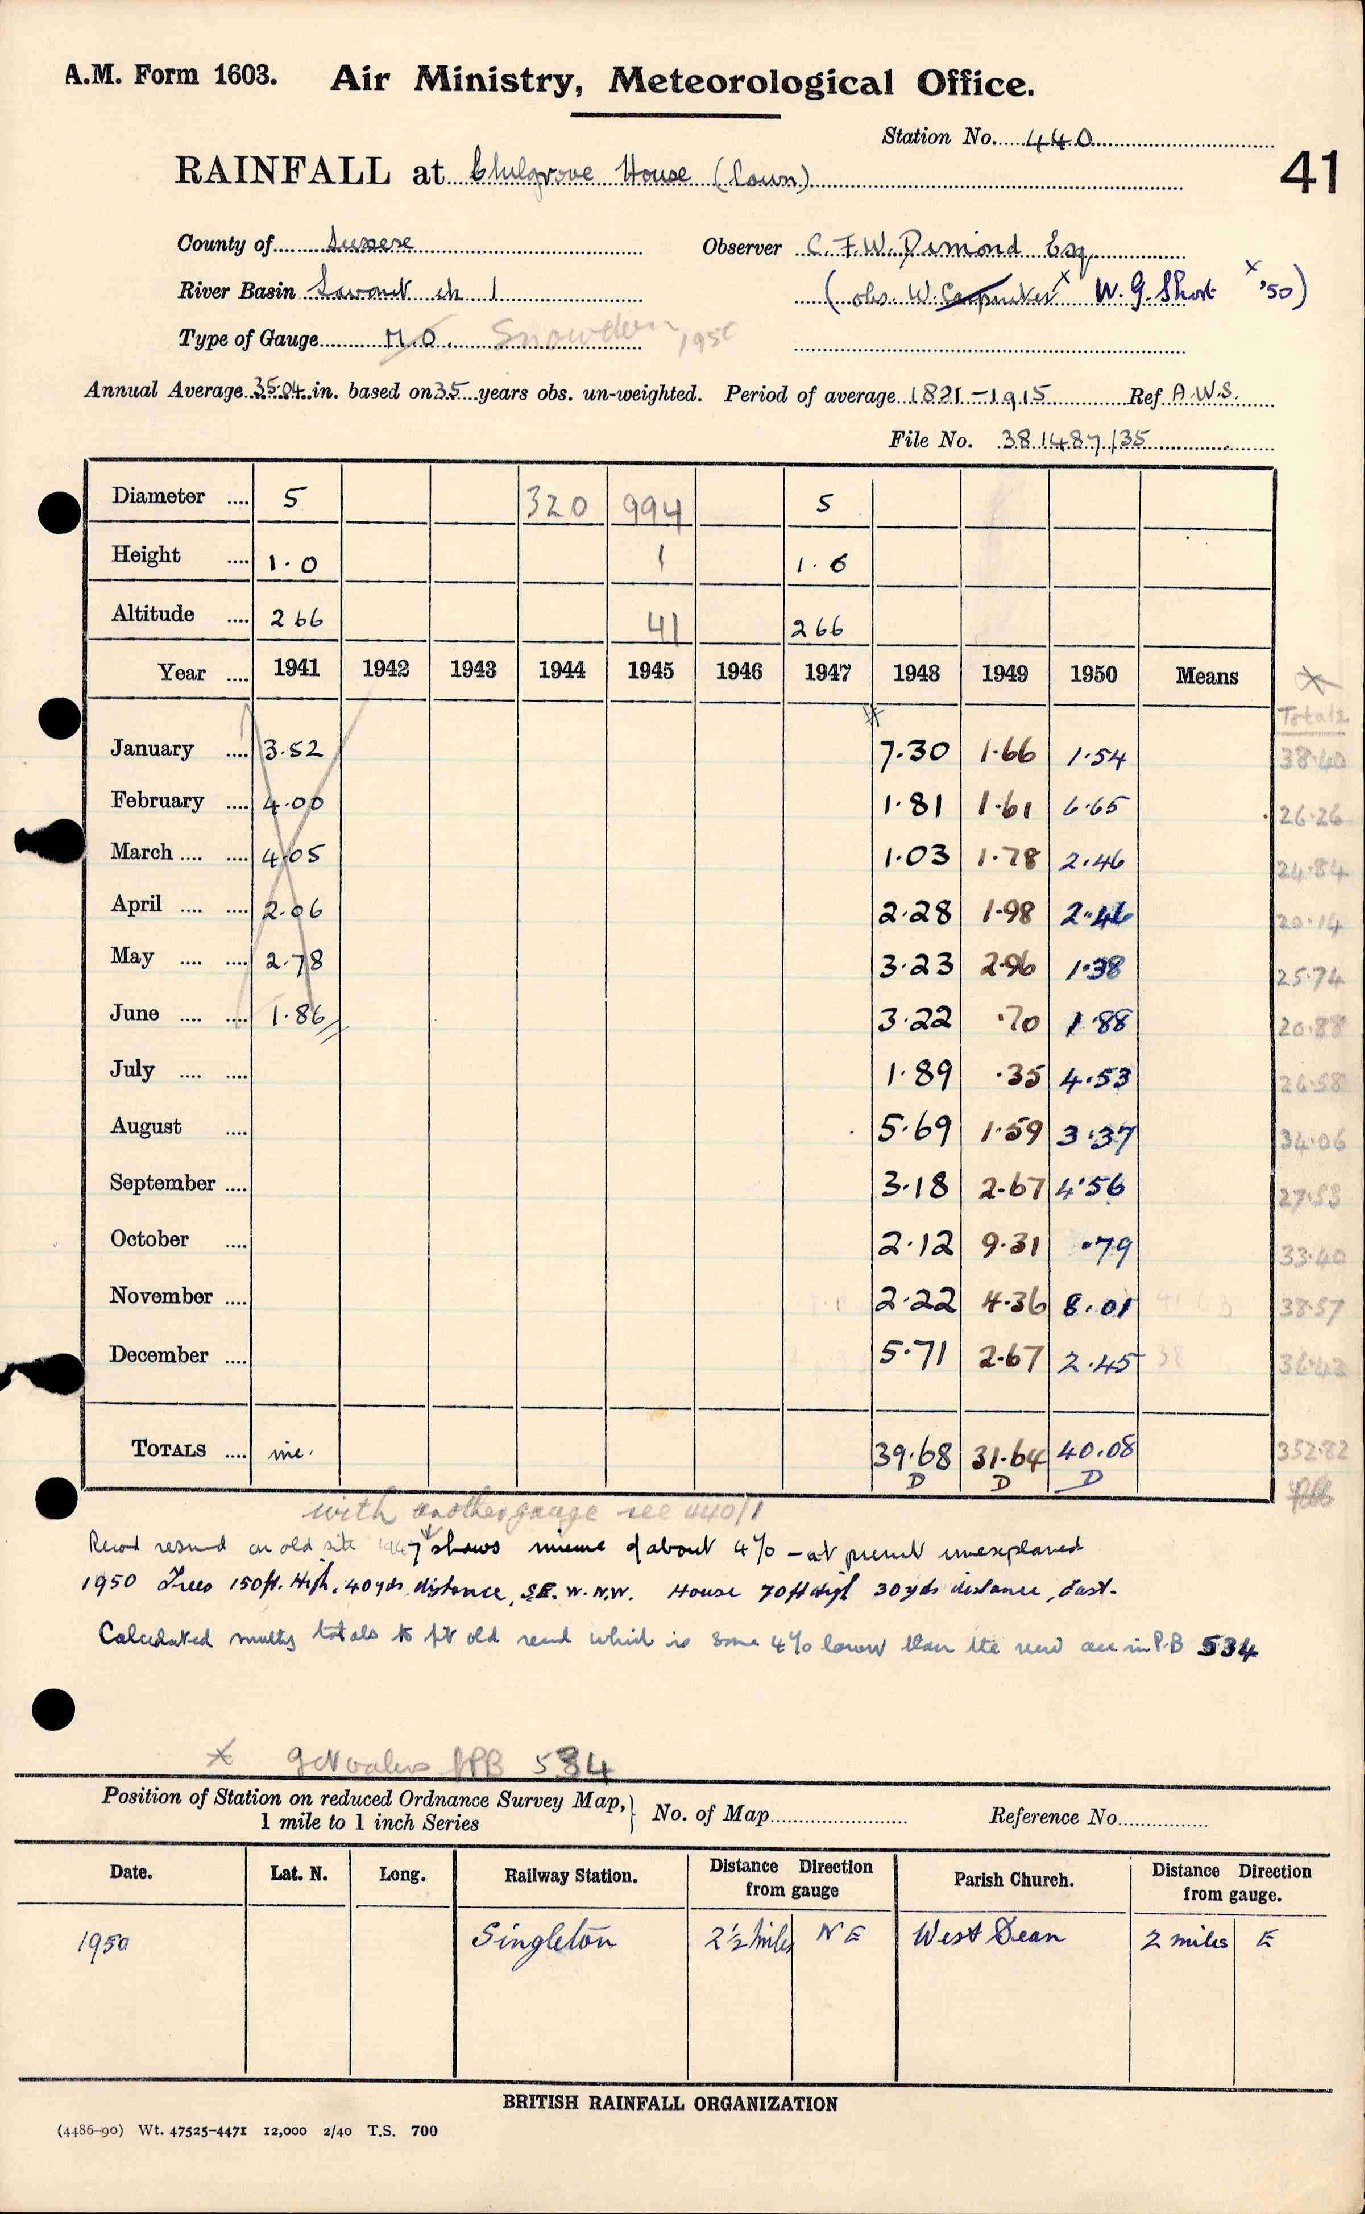 A.M. Form 1603. Air Ministry, Meteorological Office.
Station No. 440
41
RAINFALL at Chilgrove House (Lawn)
County of Sussex Observer C.F.W. Dimond Esq
River Basin Lavant ch 1 (obs. W. Carpenter x W.G. Short x '50)
Type of Gauge M.O. Snowdon 1950
Annual Average 35.04 in. based on 35 years obs. un-weighted. Period of average 1881-1915 Ref A.W.S.
File No. 381487/35
Diameter .... 5 320 994 5
Height .... 1.0 1 1.0
Altitude .... 266 41 266
Year .... 1941 1942 1943 1944 1945 1946 1947 1948 1949 1950 Means
Totals
January .... 3.52 7.30 1.66 1.54 38.40
February .... 4.00 1.81 1.61 6.65 26.26
March .... .... 4.05 1.03 1.78 2.46 24.84
April .... .... 2.06 2.28 1.98 2.46 20.14
May .... .... 2.78 3.23 2.96 1.38 25.74
June .... .... 1.86 3.22 .70 1.88 20.88
July .... .... 1.89 .35 4.53 26.58
August .... 5.69 1.59 3.37 34.06
September .... 3.18 2.67 4.56 27.53
October .... 2.12 9.31 .79 33.40
November .... 2.22 4.36 8.01 38.57
December .... 5.71 2.67 2.45 36.42
TOTALS .... inc. 39.68 31.64 40.08 352.82
D D D
with another gauge see 440/1
Record resumed on old site 1947 shows minus of about 4% - at present unexplained
1950 Trees 150ft. High, 40yds distance, SE. W. N.W. House 70ft high 30yds distance, East.
Calculated monthly totals to fit old record which is some 4% lower than the new are in P.B 534
x get values PB 534
Position of Station on reduced Ordnance Survey Map, 1 mile to 1 inch Series } No. of Map Reference No.
Date. Lat. N. Long. Railway Station. Distance Direction from gauge Parish Church. Distance Direction from gauge.
1950 Singleton 2½ miles NE West Dean 2 miles E
BRITISH RAINFALL ORGANIZATION
(4486-90) Wt. 47525-4471 12,000 2/40 T.S. 700